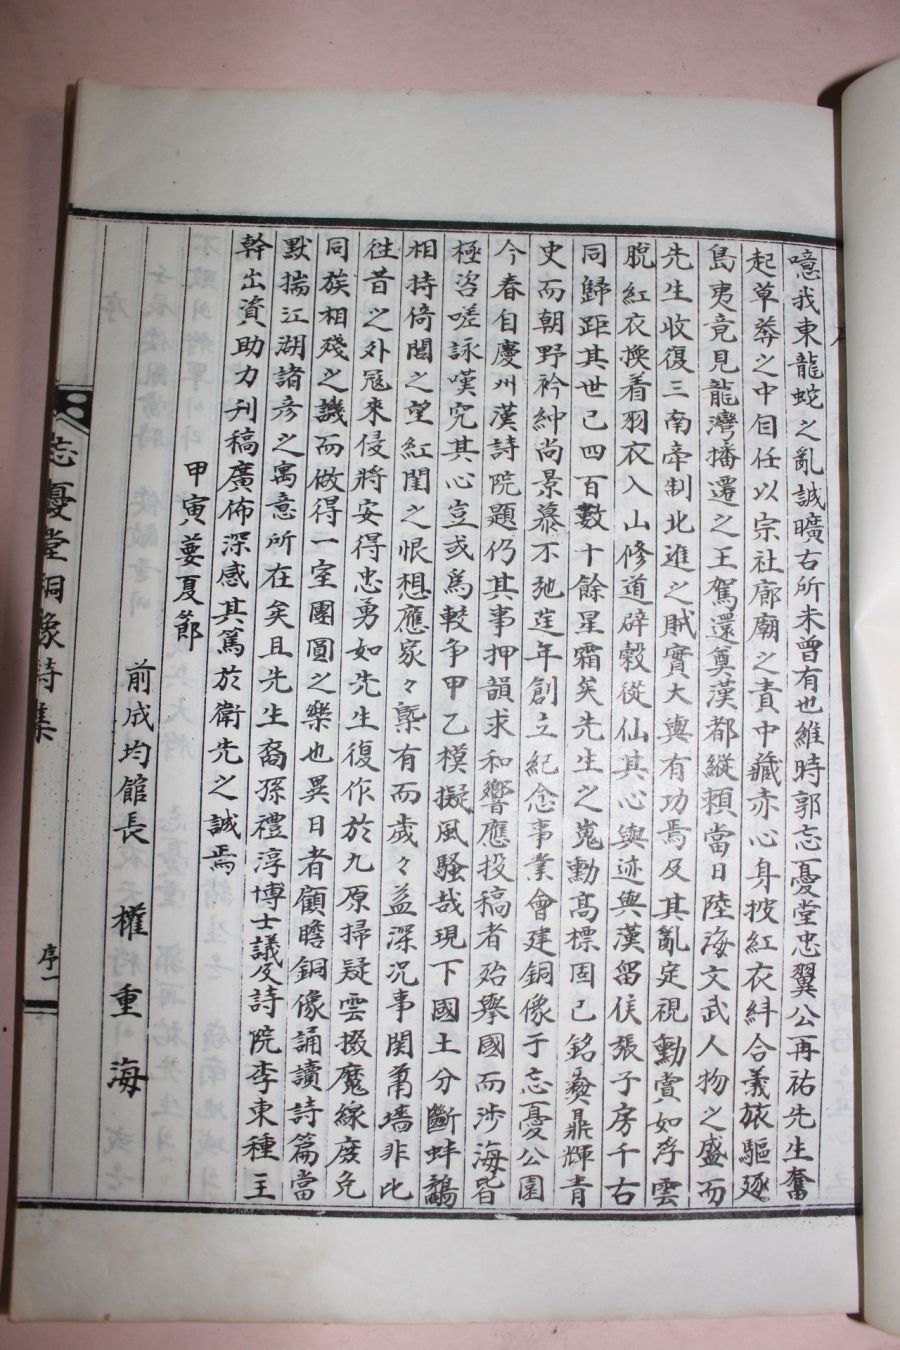 噫我東龍蛇之亂誠曠古所未曾有也維時郭忘憂堂忠翼公再祐先生奮
起草莽之中自任以宗社廊廟之責中藏赤心身披紅衣糾合義旅驅逐
島夷竟見龍灣播遷之王駕還奠漢都縱賴當日陸海文武人物之盛而
先生收復三南牽制北進之賊實大與有功焉及其亂定視勳賞如浮雲
脫紅衣換着羽衣入山修道辟穀從仙其心與迹與漢留侯張子房千古
同歸距其世已四百數十餘星霜矣先生之嵬勳高標固已銘彛鼎輝青
史而朝野衿紳尚景慕不弛莚年創立紀念事業會建銅像于忘憂公園
今春自慶州漢詩院題仍其事押韻求和響應投稿者殆擧國而涉海皆
極咨嗟詠嘆究其心豈或爲較争甲乙模擬風騷哉現下國土分斷蚌鷸
相持倚閭之望紅閨之恨想應家々槩有而歲々益深况事関萧墻非比
徃昔之外冦來侵將安得忠勇如先生復作於九原掃疑雲掇魔線庋免
同族相殘之譏而做得一室團圓之樂也異日者顧瞻銅像誦讀詩篇當
默揣江湖諸彦之寓意所在矣且先生裔孫禮淳博士議及詩院李東種主
幹出資助力刊稿廣佈深感其篤於衛先之誠焉
甲寅蔞夏節
前成均館長 權重海
忘憂堂銅像詩集
序一